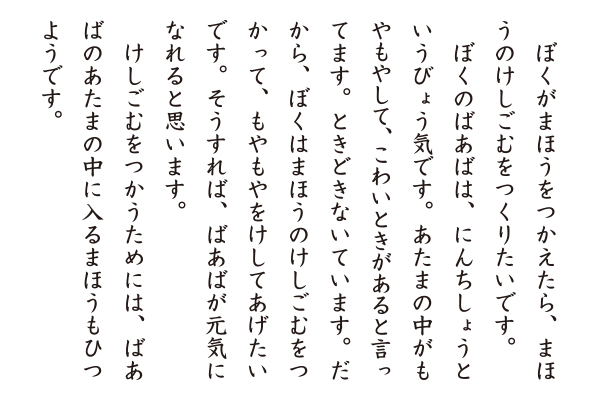 ぼくがまほうをつかえたら、まほ
うのけしごむをつくりたいです。
　ぼくのばあばは、にんちしょうと
いうびょう気です。あたまの中がも
やもやして、こわいときがあると言っ
てます。ときどきないています。だ
から、ぼくはまほうのけしごむをつ
かって、もやもやをけしてあげたい
です。そうすれば、ばあばが元気に
なれると思います。
　けしごむをつかうためには、ばあ
ばのあたまの中に入るまほうもひつ
ようです。